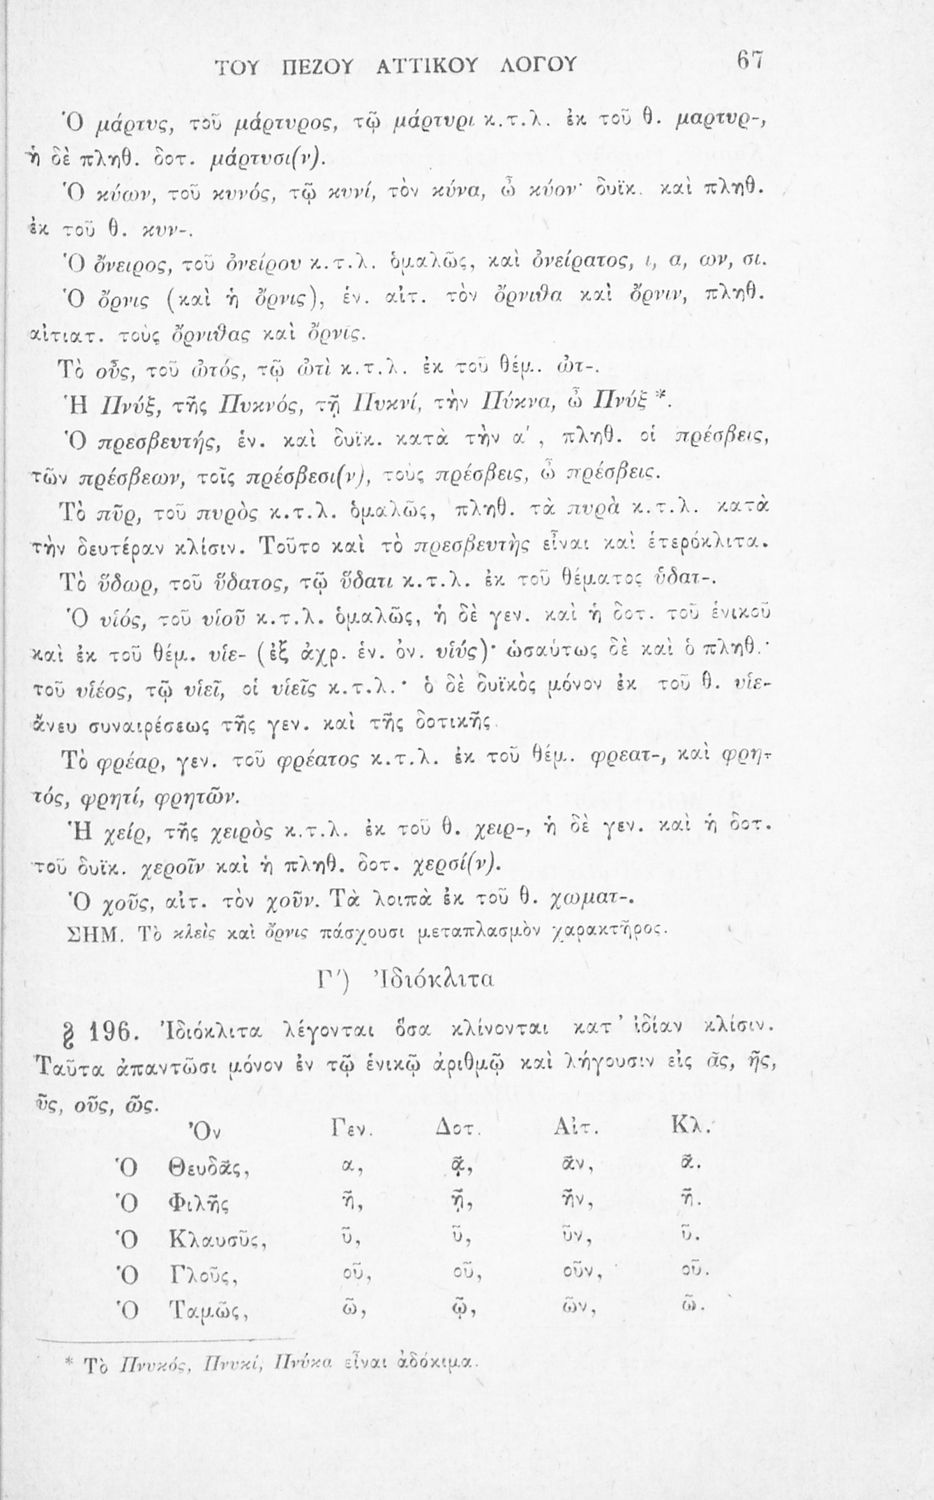 ΤΟΥ ΠΕΖΟΥ ΑΤΤΙΚΟΥ ΛΟΓΟΥ 67
Ὁ μάρτυς, τοῦ μάρτυρος, τῷ μάρτυρι κ.τ.λ. ἐκ τοῦ θ. μαρτυρ-,
ἡ δὲ πληθ. δοτ. μάρτυσι(ν).
Ὁ κύων, τοῦ κυνός, τῷ κυνί, τὸν κύνα, ὦ κύον· δυϊκ. καὶ πληθ.
ἐκ τοῦ θ. κυν-.
Ὁ ὄνειρος, τοῦ ὀνείρου κ.τ.λ. ὁμαλῶς, καὶ ὀνείρατος, ι, α, ων, σι.
Ὁ ὄρνις (καὶ ἡ ὄρνις), ἑν. αἰτ. τὸν ὄρνιθα καὶ ὄρνιν, πληθ.
αἰτιατ. τοὺς ὄρνιθας καὶ ὄρνις.
Τὸ οὖς, τοῦ ὠτός, τῷ ὠτὶ κ.τ.λ. ἐκ τοῦ θέμ. ὠτ-.
Ἡ Πνύξ, τῆς Πυκνός, τῇ Πυκνί, τὴν Πύκνα, ὦ Πνύξ *.
Ὁ πρεσβευτής, ἑν. καὶ δυϊκ. κατὰ τὴν α΄, πληθ. οἱ πρέσβεις,
τῶν πρέσβεων, τοῖς πρέσβεσι(ν), τοὺς πρέσβεις, ὦ πρέσβεις.
Τὸ πῦρ, τοῦ πυρὸς κ.τ.λ. ὁμαλῶς, πληθ. τὰ πυρὰ κ.τ.λ. κατὰ
τὴν δευτέραν κλίσιν. Τοῦτο καὶ τὸ πρεσβευτὴς εἶναι καὶ ἑτερόκλιτα.
Τὸ ὕδωρ, τοῦ ὕδατος, τῷ ὕδατι κ.τ.λ. ἐκ τοῦ θέματος ὑδατ-.
Ὁ υἱός, τοῦ υἱοῦ κ.τ.λ. ὁμαλῶς, ἡ δὲ γεν. καὶ ἡ δοτ. τοῦ ἑνικοῦ
καὶ ἐκ τοῦ θέμ. υἱε- (ἐξ ἀχρ. ἑν. ὀν. υἱύς)· ὡσαύτως δὲ καὶ ὁ πληθ.·
τοῦ υἱέος, τῷ υἱεῖ, οἱ υἱεῖς κ.τ.λ.· ὁ δὲ δυϊκὸς μόνον ἐκ τοῦ θ. υἱε-
ἄνευ συναιρέσεως τῆς γεν. καὶ τῆς δοτικῆς.
Τὸ φρέαρ, γεν. τοῦ φρέατος κ.τ.λ. ἐκ τοῦ θέμ. φρεατ-, καὶ φρη-
τός, φρητί, φρητῶν.
Ἡ χείρ, τῆς χειρὸς κ.τ.λ. ἐκ τοῦ θ. χειρ-, ἡ δὲ γεν. καὶ ἡ δοτ.
τοῦ δυϊκ. χεροῖν καὶ ἡ πληθ. δοτ. χερσί(ν).
Ὁ χοῦς, αἰτ. τὸν χοῦν. Τὰ λοιπὰ ἐκ τοῦ θ. χωματ-.
ΣΗΜ. Τὸ κλεὶς καὶ ὄρνις πάσχουσι μεταπλασμὸν χαρακτῆρος.
Γ΄) Ἰδιόκλιτα
§ 196. Ἰδιόκλιτα λέγονται ὅσα κλίνονται κατ' ἰδίαν κλίσιν.
Ταῦτα ἀπαντῶσι μόνον ἐν τῷ ἑνικῷ ἀριθμῷ καὶ λήγουσιν εἰς ᾶς, ῆς,
ῦς, οῦς, ῶς.
Ὀν Γεν. Δοτ. Αἰτ. Κλ.
Ὁ Θευδᾶς, α, ᾷ, ᾶν, ᾶ.
Ὁ Φιλῆς ῆ, ῇ, ῆν, ῆ.
Ὁ Κλαυσῦς, ῦ, ῦ, ῦν, ῦ.
Ὁ Γλοῦς, οῦ, οῦ, οῦν, οῦ.
Ὁ Ταμῶς, ῶ, ῷ, ῶν, ῶ.
* Τὸ Πνυκός, Πνυκί, Πνύκα εἶναι ἀδόκιμα.